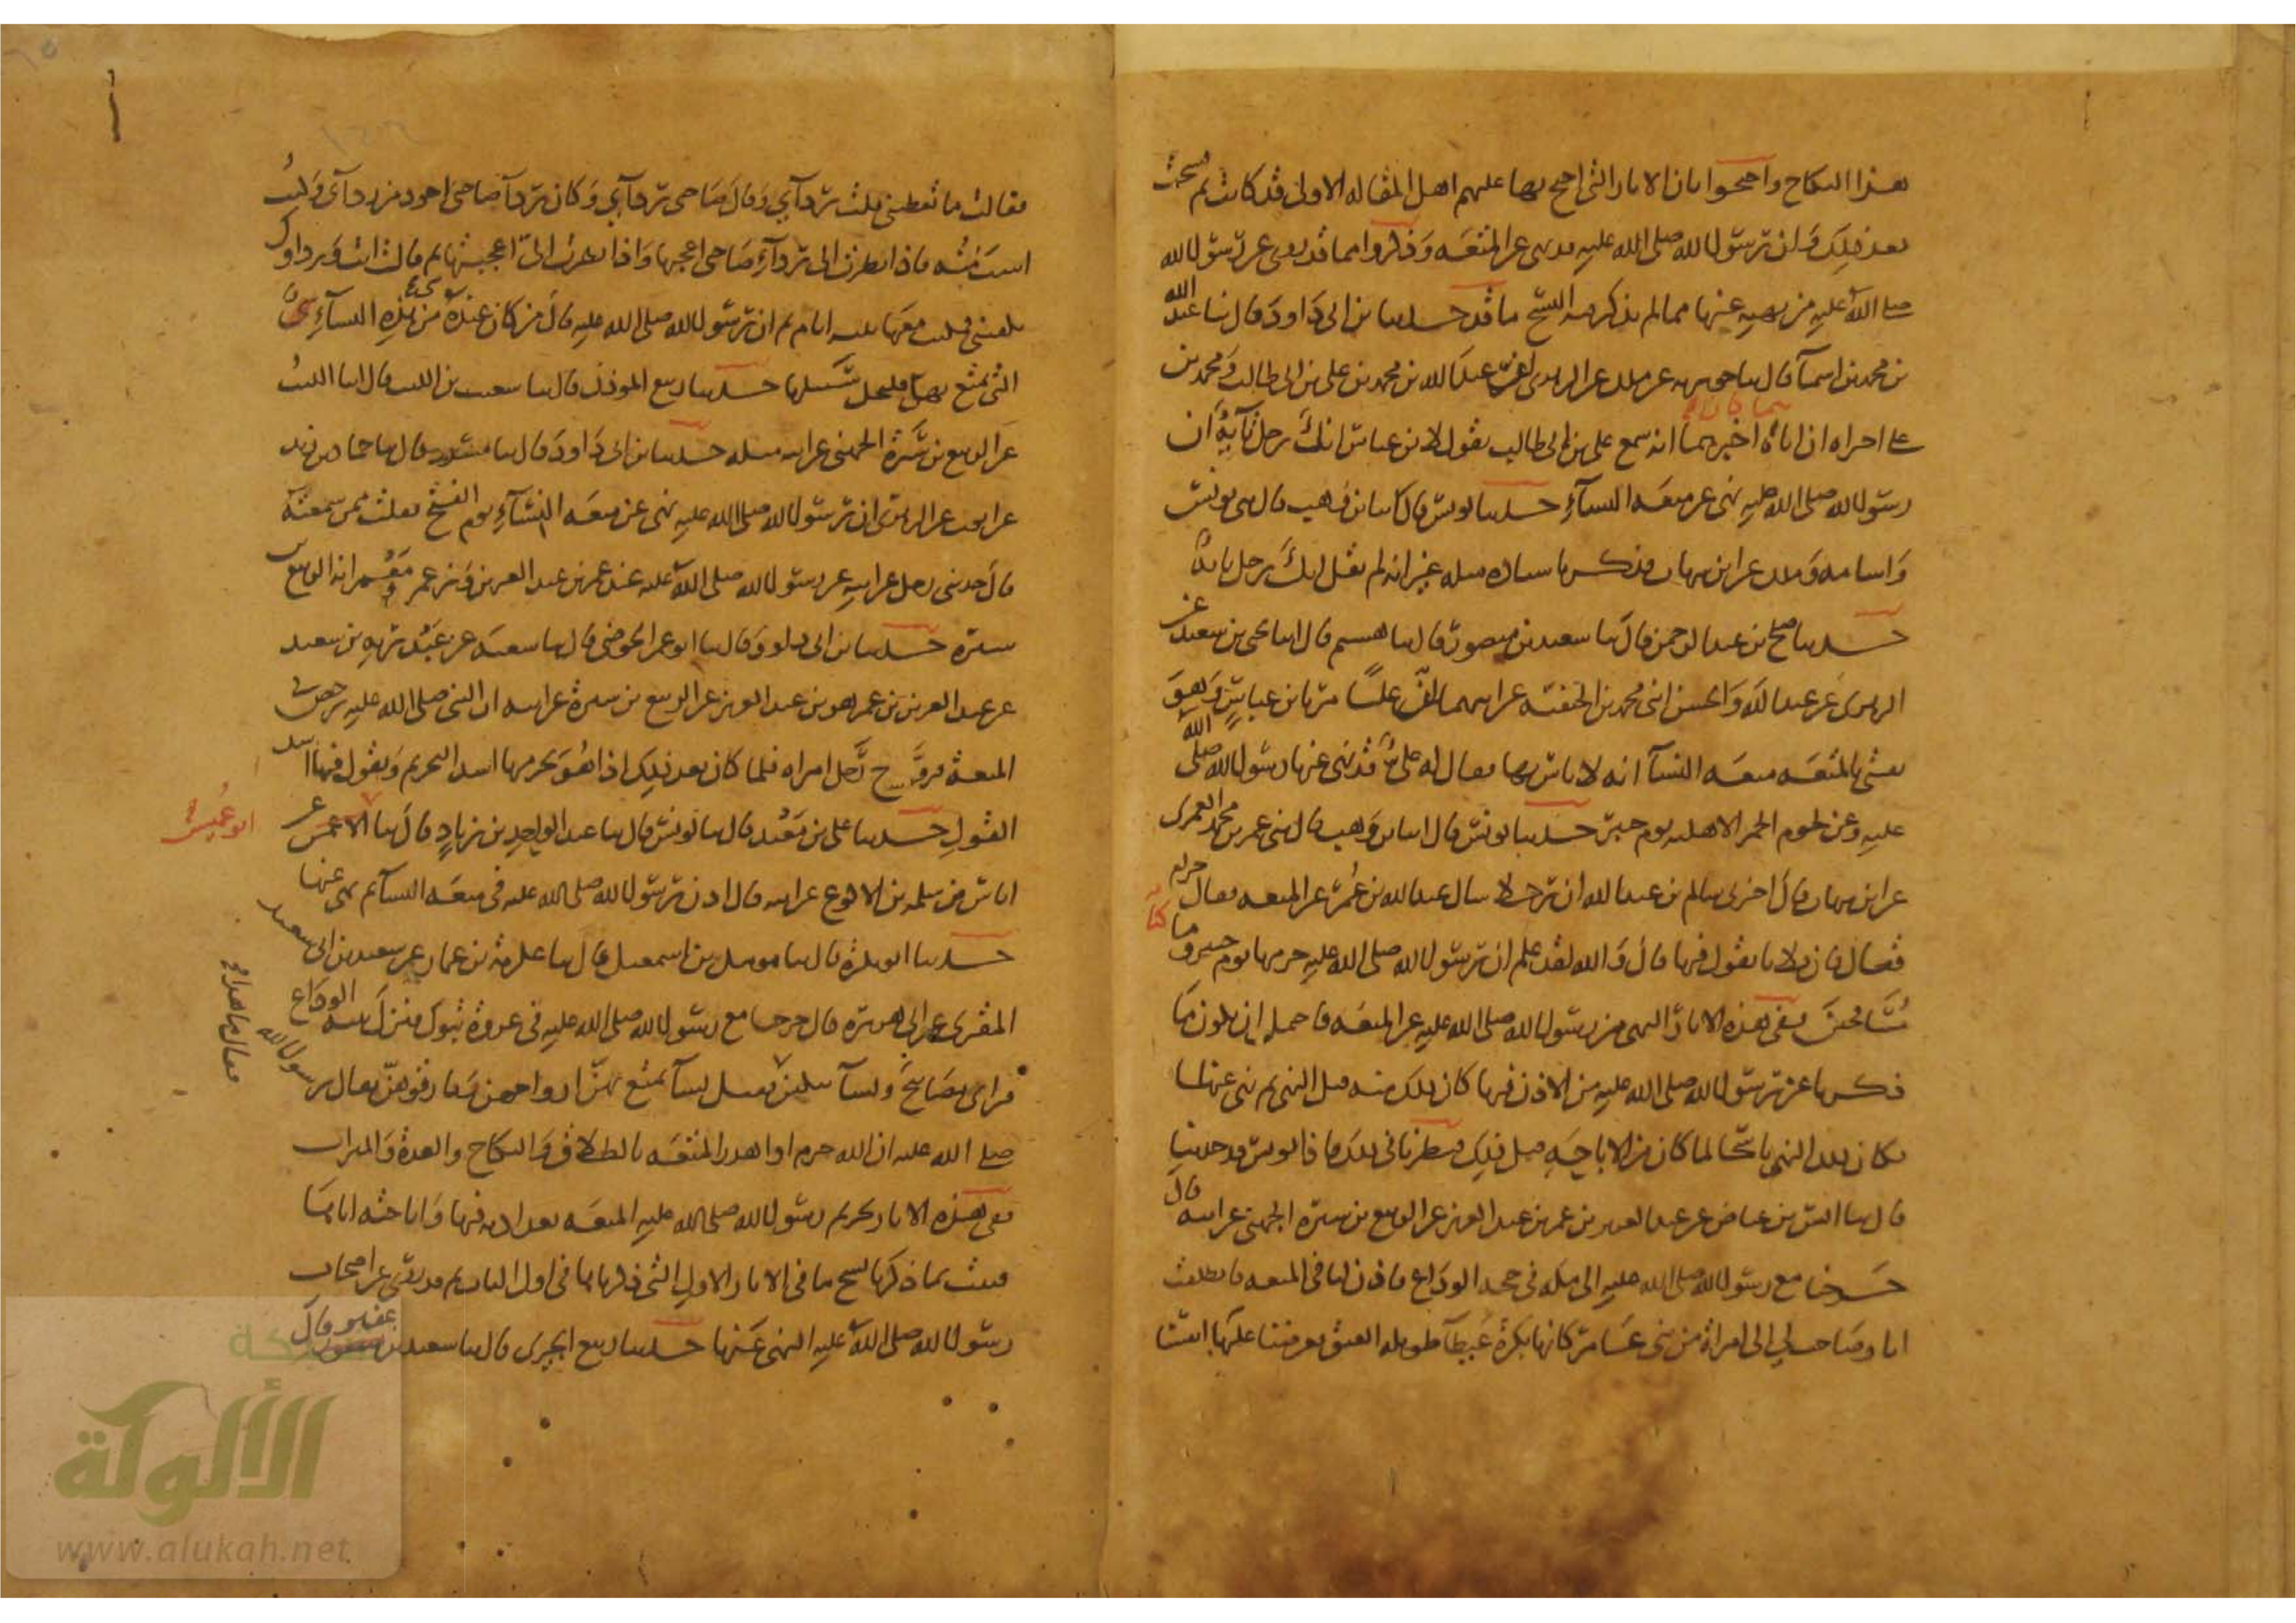 هذا النكاح واحتجوا بان الاثار التي احتج بها عليهم اهل المقاله الاولى قد كانت ثم نسخت
بعد ذلك وان رسول الله صلى الله عليه قد نهى عن المتعه وذكروا مما قد روى عن رسول الله
صلى الله عليه من نهيه عنها مما لم يذكر فيه النسخ ما قد حدثنا بن ابى داود قال ثنا عبد الله
بن محمد بن اسمآ قال ثنا جويريه عن ملك عن الزهرى ان عبد الله بن محمد بن على بن ابى طالب ومحمد بن
على اخبراه ان اباهما اخبرهما انه سمع على بن ابى طالب يقول لابن عباس انك رجل تآيه ان
رسول الله صلى الله عليه نهى عن متعه النسآء حدثنا يونس قال انا بن وهب قال انى يونس
واسامه وملك عن ابن شهاب فذكر باسناده مثله غير انه لم يقل انك رجل تايه
حدثنا صلح بن عبد الرحمن قال ثنا سعيد بن منصور قال ثنا هشيم قال انا يحيى بن سعيد عن
الزهرى عن عبد الله والحسن ابنى محمد بن الحنفيه عن ابيهما ان عليا مر بابن عباس وهو
يفتى بالمتعه متعه النسآ انه لا باس بها فقال له على قد نهى عنها رسول الله صلى الله
عليه وعن لحوم الحمر الاهليه يوم خيبر حدثنا يونس قال انا بن وهب قال انى عمر بن محمد العمرى
عن ابن شهاب قال اخبرنى سالم بن عبد الله ان رجلا سال عبد الله بن عمر عن المتعه فقال حرام
فقال فان فلانا يقول فيها قال والله لقد علم ان رسول الله صلى الله عليه حرمها يوم خيبر وما كنا
مسافحين ففى هذه الاثار النهى من رسول الله صلى الله عليه عن المتعه فاحتمل ان يكون ما
ذكرنا عن رسول الله صلى الله عليه من الاذن فيها كان ذلك منه قبل النهى ثم نهى عنها
فكان ذلك النهى ناسخا لما كان من الاباحه قبل ذلك فنظرنا فى ذلك فاذا يونس قد حدثنا
قال ثنا انس بن عياض عن عبد العزيز بن عمر بن عبد العزيز عن الربيع بن سبره الجهنى عن ابيه قال
خرجنا مع رسول الله صلى الله عليه الى مكه فى حجه الوداع فاذن لنا فى المتعه فانطلقت
انا وصاحب لى الى امراة من بنى عامر كانها بكرة عيطآ طويله العنق فعرضنا عليها انفسنا
فقالت ما تعطينى فقلت ردآى وقال صاحبى ردآى وكان ردآ صاحبى اجود من ردآى وكنت
اشب منه فاذا نظرت الى ردآء صاحبى اعجبها واذا نظرت الىّ اعجبتها ثم قالت انت ورداوك
يكفينى فمكثت معها ثلثه ايام ثم ان رسول الله صلى الله عليه قال من كان عنده من هذه النسآء شئ
التى يتمتع بهن فليخل سبيلها حدثنا ربيع الموذن قال ثنا شعيب بن الليث قال انا الليث
عن الربيع بن سبرة الجهنى عن ابيه مثله حدثنا بن ابى داود قال ثنا مسدد قال ثنا حماد بن زيد
عن ايوب عن الزهرى ان رسول الله صلى الله عليه نهى عن متعه النسآء يوم الفتح فقلت ممن سمعته
قال حدثنى رجل عن ابيه عن رسول الله صلى الله عليه عند عمر بن عبد العزيز وزعم معمر انه الربيع بن
سبره حدثنا بن ابى داود قال ثنا ابو عمر الحوضى قال ثنا شعبه عن عبد ربه بن سعيد
عن عبد العزيز بن عمر هو بن عبد العزيز عن الربيع بن سبرة عن ابيه ان النبى صلى الله عليه رخص فى
المتعه فتزوج رجل امراه فلما كان بعد ذلك اذا هو يحرمها اشد التحريم ويقول فيها اشد
القول حدثنا على بن معبد قال ثنا يونس قال ثنا عبد الواحد بن زياد قال ثنا الاعمش عن
ابو عميس
اياس بن سلمه بن الاكوع عن ابيه قال اذن رسول الله صلى الله عليه فى متعه النسآ ثم نهى عنها
حدثنا ابو بكرة قال ثنا مومل بن اسمعيل قال ثنا عكرمه بن عمار عن سعيد بن ابى سعيد
المقبرى عن ابى هريره قال خرجنا مع رسول الله صلى الله عليه فى غزوة تبوك فنزل ثنيه الوداع
فراى مصابيح ونسآ يبكين فقيل نسآ تمتع بهن ازواجهن وفارقوهن فقال رسول الله
فقال ما هذا
صلى الله عليه ان الله حرم او اهدر المتعه بالطلاق والنكاح والعدة والميراث
ففى هذه الاثار تحريم رسول الله صلى الله عليه المتعه بعد اذنه فيها واباحته اياها
فثبت بما ذكرنا نسخ ما فى الاثار الاول التى ذكرناها فى اول الباب ثم قد روى عن اصحاب
رسول الله صلى الله عليه النهى عنها حدثنا ربيع الجيزى قال ثنا سعيد بن عفير قال
الألوكة
www.alukah.net